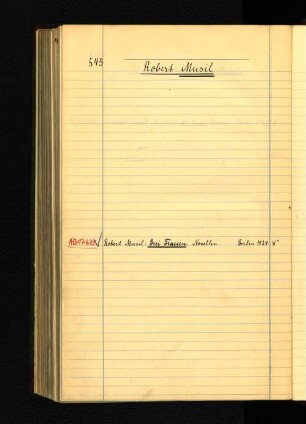 545
Robert Musil
Robert Musil: Drei Frauen. Novellen. Berlin 1924. 8°